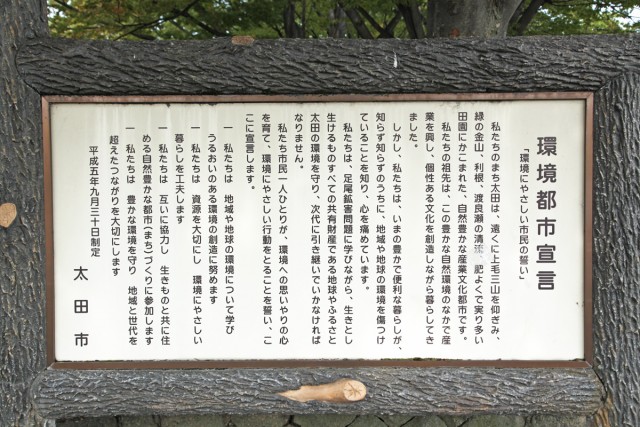 環境都市宣言
「環境にやさしい市民の誓い」
私たちのまち太田は、遠くに上毛三山を仰ぎみ、
緑の金山、利根、渡良瀬の清流、肥よくで実り多い
田園にかこまれた、自然豊かな産業文化都市です。
私たちの祖先は、この豊かな自然環境のなかで産
業を興し、個性ある文化を創造しながら暮らしてき
ました。
しかし、私たちは、いまの豊かで便利な暮らしが、
知らず知らずのうちに、地域や地球の環境を傷つけ
ていることを知り、心を痛めています。
私たちは、足尾鉱害問題に学びながら、生きとし
生けるものすべての共有財産である地球やふるさと
太田の環境を守り、次代に引き継いでいかなければ
なりません。
私たち市民一人ひとりが、環境への思いやりの心
を育て、環境にやさしい行動をとることを誓い、こ
こに宣言します。
一 私たちは 地域や地球の環境について学び
うるおいのある環境の創造に努めます
一 私たちは 資源を大切にし 環境にやさしい
暮らしを工夫します
一 私たちは 互いに協力し 生きものと共に住
める自然豊かな都市(まち)づくりに参加します
一 私たちは 豊かな環境を守り 地域と世代を
超えたつながりを大切にします
平成五年九月三十日制定
太田市